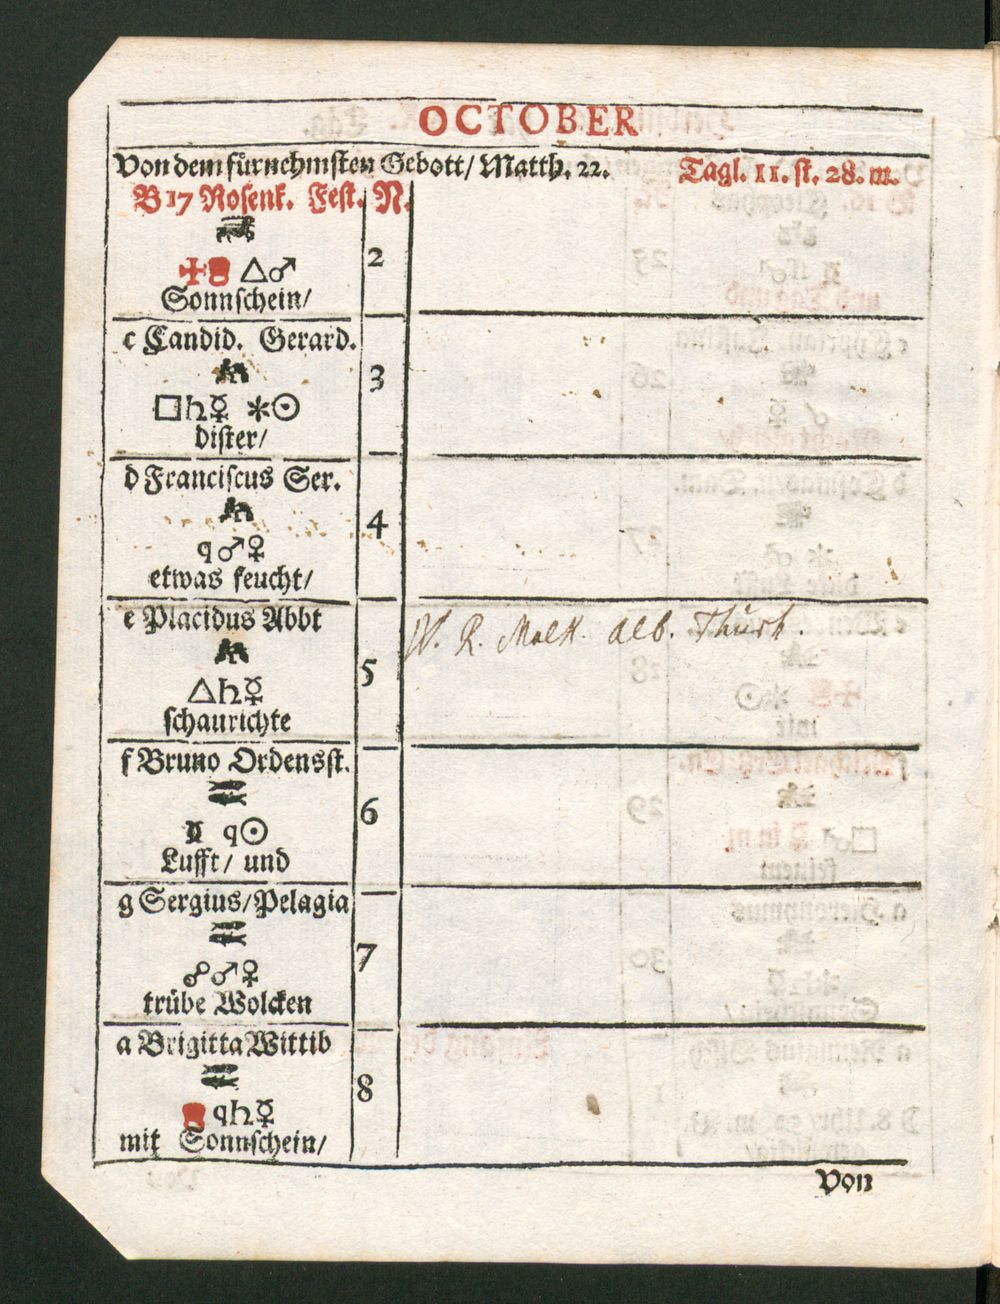 OCTOBER
Von dem fürnehmsten Gebott/ Matth. 22. Tagl. 11. st. 28. m.
B 17 Rosenk. Fest. N.
△♂
2
Sonnschein/
c Candid. Gerard.
3
□♄☿ ✶☉
dister/
d Franciscus Ser.
4
q♂♀
etwas feucht/
e Placidus Abbt
N. R. Alb.
5
△♄☿
schaurichte
f Bruno Ordensst.
6
q☉
Lufft/ und
g Sergius/Pelagia
7
☍♂♀
trübe Wolcken
a Brigitta Wittib
8
q♄☿
mit Sonnschein/
Von